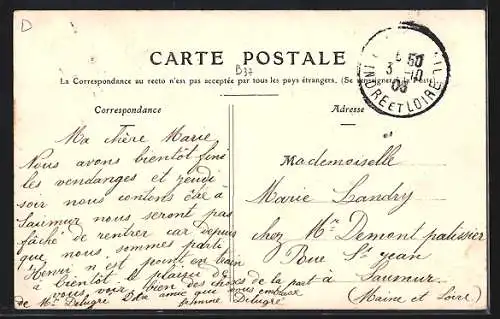 D
CARTE POSTALE
B37
La Correspondance au recto n'est pas acceptée par tous les pays étrangers. (Se renseigner à la Poste)
INDRE ET LOIRE
3 -10
Correspondance
Adresse
Ma chère Marie
Nous avons bientôt fini
les vendanges et jeudi
soir nous contons être à
Saumur nous seront pas
fâché de rentrer car depuis
que nous sommes parti
Henri n est point en bain
à bientôt le plaisir de
vous voir bien des choses de la part à
de Mr Delugré Ton amie qui vous embrasse
Delugré
Mademoiselle
Marie Landry
chez Mr Demont patissier
Rue St jean
Saumur
(Maine et Loire)